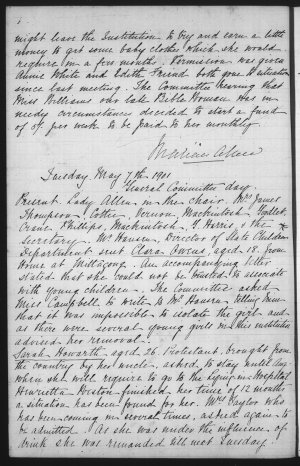 might leave the Institution to try and earn a little
money to get some baby clothes which she would
require in a few months. Permission was given
Annie White and Edith Friend both gone to situation
since last meeting. The Committee hearing that
Miss Williams our late Bible Woman was in
needy circumstances decided to start a fund
of per week to be paid to her monthly.
Marian Allen
Tuesday May 7th 1901
General Committee day.
Present. Lady Allen, in the chair, Mrs James
Thompson, Vernon, Mackintosh,
Crane, Phillips, Mackintosh, G. Harris, & the
Secretary. Mr Director of State Children
Department sent Clara aged 18, from
Home at Mittagong. An accompanying letter
stated that she could not be trusted to associate
with young children. The Committee asked
Miss Campbell to write to Mr telling him
that it was impossible to isolate the girl and
as there were several young girls in this institution
advised her removal.
Sarah Howarth, aged 26, Protestant, brought from
the country by her uncle, asked to stay until
when she will require to go to the Lying-in Hospital
Henrietta finished her time of 12 months
a situation has been found for her. Mrs Taylor who
has been coming in several times, asked again to
be admitted. As she was under the influence of
drink she was remanded till next Tuesday.